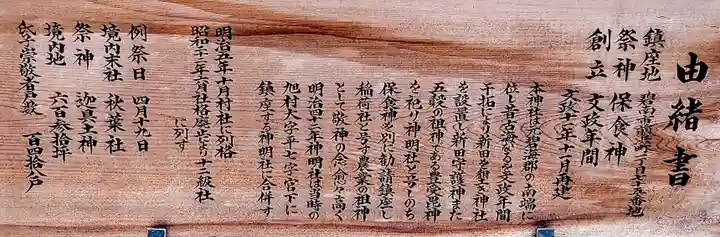 由緒書
鎮座地 碧南市前浜町一丁目七三番地
祭神 保食神
創立 文政年間
文政十二年十一月再建
本神社は元碧海郡の南端に
位し昔古海なるを文政年間
干拓により新田を墾き神社
を設置し新田守護神また
五穀の祖神である豊受毘神
を祀り神明社と号すのち
保食神を別に勧請鎮座し
稲荷社と号す農業の祖神
として敬神の念愈々高く
明治四十二年神明社は当時の
旭村大字平七字宮下に
鎮座する神明社に合併す
明治五年十月村社に列格
昭和十二年六月社格廃止より十二級社
に列す
例祭日 四月十九日
境内末社 秋葉社
祭神 迦具土神
境内地 六百参拾坪
氏子崇敬者戸数 百四拾八戸